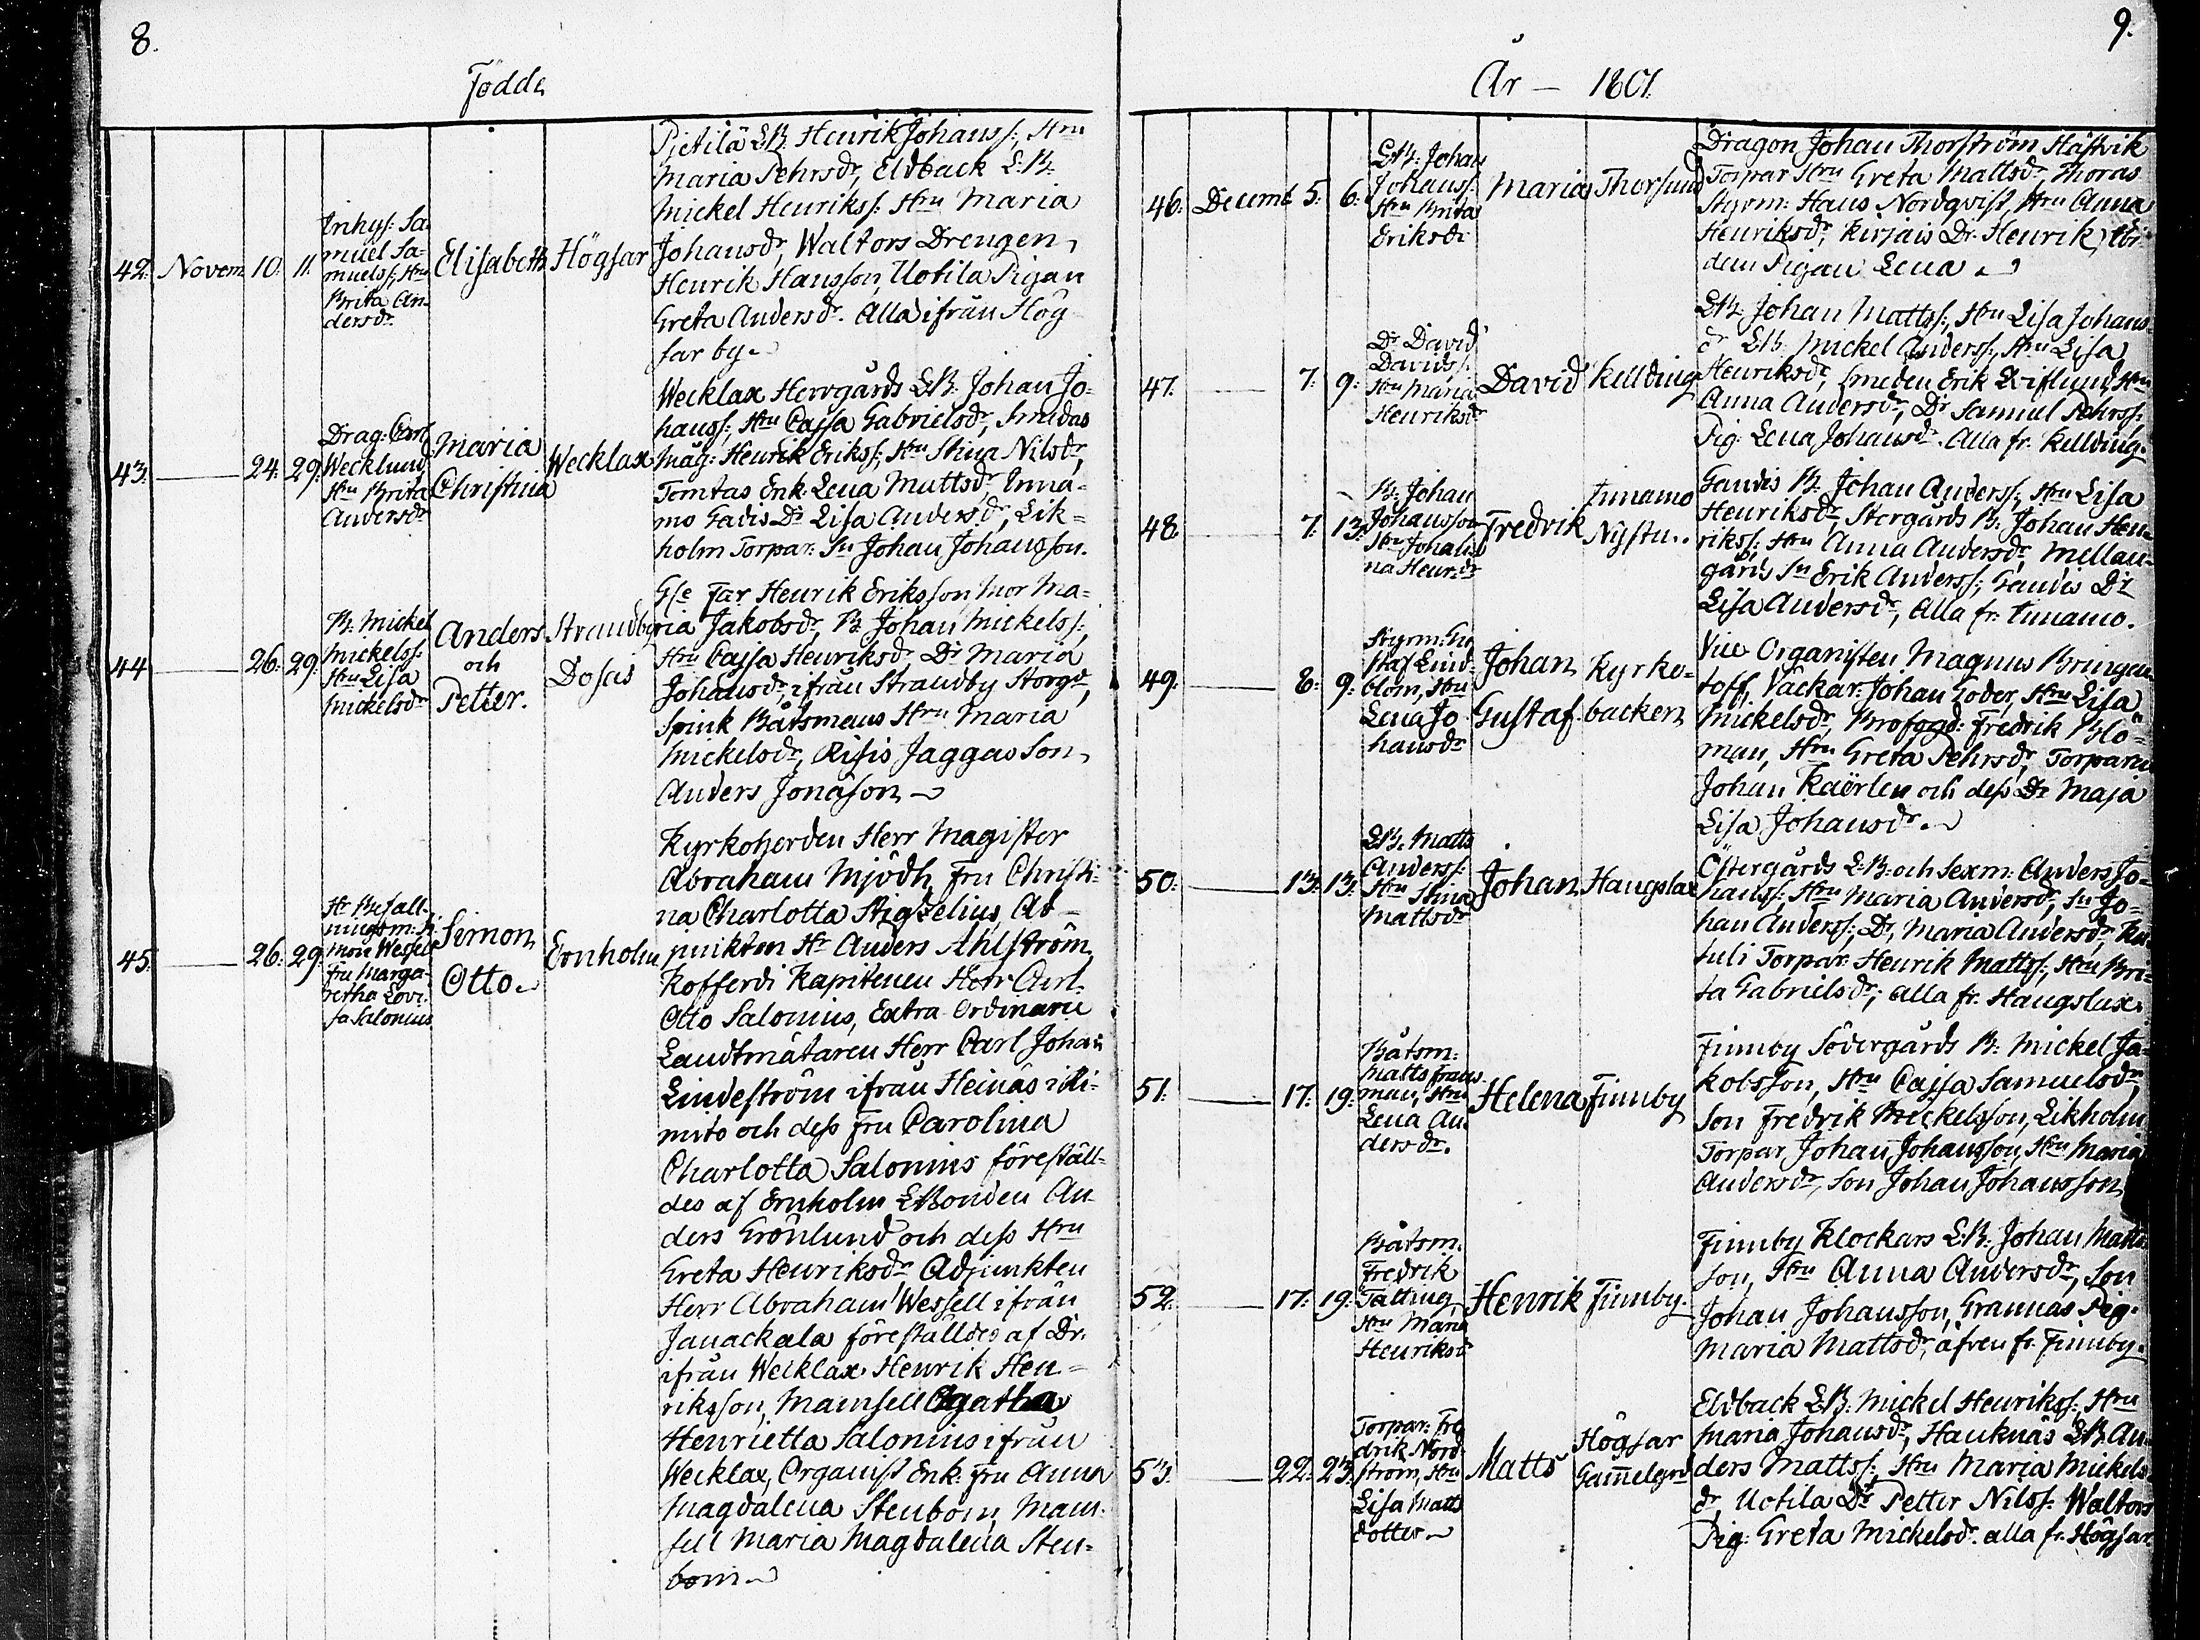 8.
Födde
42. Novem 10. 11.
Inhys: Sa-
muel Sa-
muelss: Hru
Brita An-
dersdr.
Elisabeth Högsar
Pjetilä LB. Henrik Johanss: Hru
Maria Pehrsdr, Eldback L.B.
Mickel Henrikss: Hru Maria
Johansdr, Waltors Drengen
Henrik Hansson, Uotila Pigan
Greta Andersdr. Alla ifrån Hög
sar by.
43. 24. 29.
Drag: Carl
Wecklund
Hru Brita
Andersdr
Maria
Christina
Wecklax
Wecklax Herrgårds LB. Johan Jo-
hanss: Hru Cajsa Gabrielsdr, Smidas
Måg: Henrik Erikss: Hru Stina Nilsdr,
Tomtas Enk. Lena Mattsdr, Inna-
mo Gavis Dr Lisa Andersdr, Lik-
holm Torpar: Sn Johan Johansson.
44 26. 29.
B. Mickel
Mickelss:
Hru Lisa
Mickelsdr
Anders
och
Petter.
Strandby
Dosas
Gle Far Henrik Eriksson, Mor Ma-
ria Jakobsdr, B. Johan Mickelss:,
Hru Cajsa Henriksdr Dr Maria
Johansdr, ifrån Strandby Storgd,
Spink Båtsmans Hru Maria
Mickelsdr, Risis Jaggas Son
Anders Jonason
45. 26. 29.
Hr Befall-
ningsm: Si-
mon Wessell
fru Marga-
retha Lovi-
sa Salonius
Simon
Otto
Ernholm
Kyrkoherden Herr Magister
Abraham Mjödh, Fru Christi-
na Charlotta Stigzelius, Ad-
junkten Hr Anders Ahlström
Kofferdi Kapitenen Herr Carl
Otto Salonius, Extra Ordinarie
Landtmätaren Herr Carl Johan
Lindeström ifrån Heinäs i Ki-
mito och dess Fru Carolina
Charlotta Salonius föreställ-
des af Ernholm LBonden An
ders Grönlund och dess Hru
Greta Henriksdr Adjunkten
Herr Abraham Wessell ifrån
Janackala föreställdes af Dr.
ifrån Wecklax Henrik Hen-
riksson, Mamsell Agatha
Henrietta Salonius ifrån
Wecklax, Organist Enk: Fru Anna
Magdalena Stenbom, Mam-
sell Maria Magdalena Sten-
bom
9.
År — 1801.
46. Decemb 5. 6.
LB: Johan
Johanss:
Hru Brita
Eriksdr
Maria Thorsund
Dragon Johan Thorström Hästvik
Torpar Hru Greta Mattsdr, Thoras
Styrm: Hans Nordqvist, Hru Anna
Henriksdr, Kirjais Dr. Henrik, ibi-
dem Pigan Lena
47. 7. 9.
Dr David
Davidss:
Hru Maria
Henriksdr
David Kellding
LB. Johan Mattss:, Hru Lisa Johans-
dr LB. Mickel Anderss:, Hru Lisa
Henriksdr, Smeden Erik Qviflund, Hru
Anna Andersdr, Dr Samuel Pehrss:
Pig: Lena Johansdr. Alla fr. Kellding.
48 7. 13.
B. Johan
Johansson
Hru Johan-
na Henr:dr
Fredrik
Innamo
Nystu.
Gandis B. Johan Anderss:, Hru Lisa
Henriksdr, Storgårds B. Johan Hen-
rikss:, Hru Anna Andersdr, Mellan-
gårds Sn Erik Anderss:, Gandis Dr
Lisa Andersdr, Alla fr. Innamo.
49. 8. 9.
Styrm: Gu
staf Lind-
blom, Hru
Lena Jo
hansdr
Johan
Gustaf
Kyrko-
backen
Vice Organisten Magnus Bringen
toff, Väckar: Johan Goder, Hru Lisa
Mickelsdr, Profogd: Fredrik Blo-
man, Hru Greta Pehrsdr, Torparen
Johan Kaërlen och dess Dr Maja
Lisa Johansdr.
50. 13. 13.
LB. Matts
Anderss:
Hru Stina
Mattsdr
Johan Haugslax
Östergårds L:B: och Sexm: Anders Jo-
hanss: Hru Maria Andersdr, Sn Jo-
han Anderss:, Dr, Maria Andersdr,
Torpar Henrik Mattss:, Hru Bri-
ta Gabrielsdr, alla fr. Haugslax.
51. 17. 19.
Båtsm:
Matts Frans
man, Hru
Lena An-
dersdr.
Helena Finnby
Finnby Södergårds B: Mickel Ja-
kobsson, Hru Cajsa Samuelsdr,
Son Fredrik Mickelsson, Likholm
Torpar Johan Johansson, Hru Maria
Andersdr, Son Johan Johansson
52. 17. 19.
Båtsm.
Fredrik
Tälting,
Hru Maria
Henriksd
Henrik Finnby
Finnby Klockars L:B: Johan Matts
son, Hru Anna Andersdr, Son
Johan Johansson, Grannas Pig.
Maria Mattsdr, äfven fr. Finnby.
53. 22. 23.
Torpar: Fre
drik Nord-
ström, Hru
Lisa Matts
dotter
Matts
Högsar
Gammelgrd
Eldback L:B: Mickel Henrikss: Hru
Maria Johansdr, Hauknäs LB. An-
ders Mattss:, Hru Maria Mickels
dr. Uotila Dr Petter Nilss: Waltors
Pig: Greta Mickelsdr. alla fr. Högsar